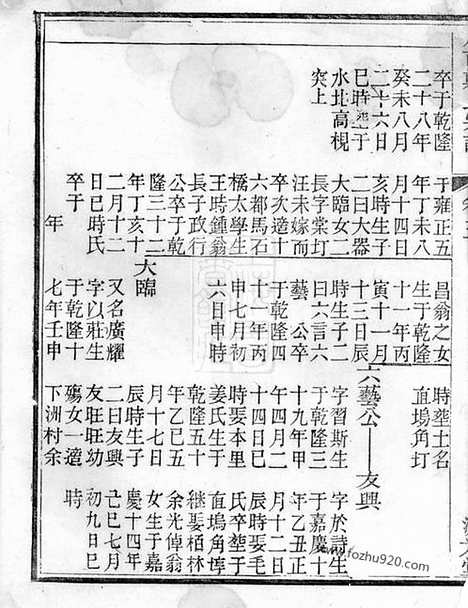 卒于乾隆
二十八年
癸未八月
二十六日
巳時塟于
水北高梘
突上
于雍正五
年丁未八
月十四日
亥時生子
二曰大器
大臨女二
長字棠圢
汪未嫁而
卒次適十
六都馬石
橋太學生
王時鍾翁
長子政行
公卒于乾
隆三十二
年丁亥十
二月十二
日巳時氏
卒于
年
昌翁之女
生于乾隆
十一年丙
寅十一月
十三日辰
時生子二
曰六言六
藝 公卒
于乾隆四
十一年丙
申七月初
六日申時
大臨
又名廣耀
字以莊生
于乾隆十
七年壬申
時塟土名
直塢角圢
六藝公——友興
字習斯生
于乾隆三
十九年甲
午四月二
十四日巳
時娶本里
姜氏生于
乾隆五十
年乙巳五
月十七日
辰時生子
二曰友興
友旺旺幼
殤女一適
下洲村余
字於詩生
于嘉慶十
年乙丑正
月十二日
辰時娶毛
氏卒塟于
直塢角悙
継娶栢林
余光倬翁
女生于嘉
慶十四年
己巳七月
初九日巳
時
www.fozhu920.com